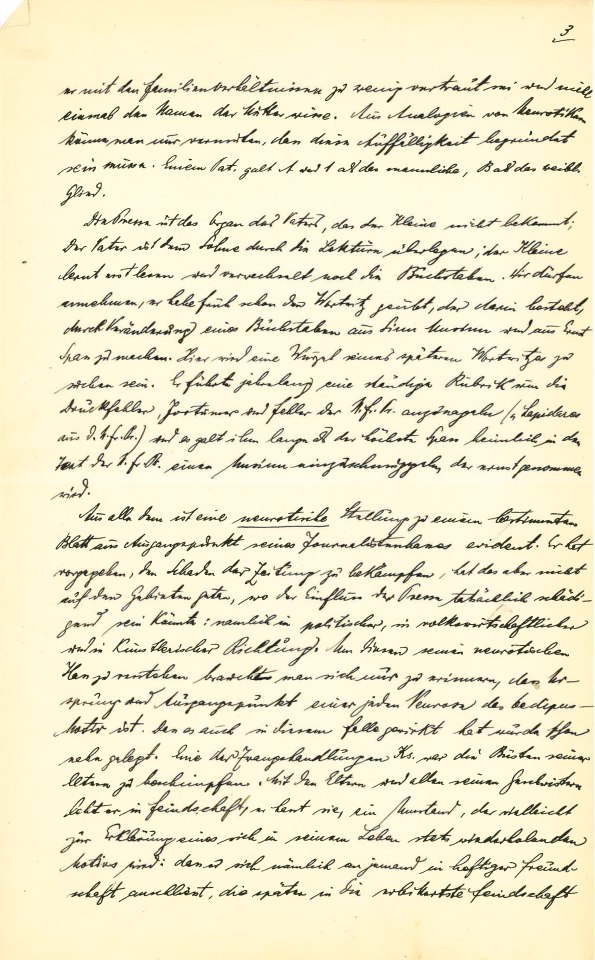 3
er mit den Familienverhältnissen zu wenig vertraut sei und nicht
einmal den Namen der Mutter wisse. Aus Analogien von Neurotikern
könne man nur vermuten, dass diese Auffälligkeit begründet
sein müsse. Einem Pat. galt A und 1 als das männliche, B als das weibl.
Glied.
Die Presse ist das Organ des Vaters, das der Kleine nicht bekommt;
Der Vater ist dem Sohne durch die Lektüre überlegen; der Kleine
lernt erst lesen und verwechselt noch die Buchstaben. Wir dürfen
annehmen, er habe früh schon den Wortwitz geübt, der darin besteht,
durch Veränderung eines Buchstaben aus Sinn Unsinn und aus Ernst
Spass zu machen. Hier wird eine Wurzel seines späteren Wortwitzes zu
suchen sein. Er führte jahrelang eine ständige Rubrik um die
Druckfehler, und Fehler der N. fr. Pr. anzunageln („
aus d. N. f. Pr.) und es galt ihm lange als der höchste Spass heimlich in den
Text der N. fr. Pr. einen Unsinn einzuschmuggeln, der ernst genommen
wird.
Aus alle dem ist eine neurotische Stellung zu einem bestimmten
Blatt als Ausgangspunkt seines Journalistenhasses evident. Er hat
vorgegeben, den Schaden der Zeitung zu bekämpfen, hat das aber nicht
auf den Gebieten getan, wo der Einfluss der Presse tatsächlich schädi-
gend sein könnte: nämlich in politischer, in volkswirtschaftlicher
und in künstlerischer Richtung. Um diesen seinen neurotischen
Hass zu verstehen brauchte man sich nur zu erinnern, dass Ur-
sprung und Ausgangspunkt einer jeden Neurose das Oedipus-
Motiv ist. Dass es auch in diesem Falle gewirkt hat wurde schon
nahe gelegt. Eine der Zwangshandlungen Ks. war die Büsten seiner
Eltern zu beschimpfen. Mit den Eltern und allen seinen Geschwistern
lebt er in Feindschaft, er hasst sie, ein Umstand, der vielleicht
zur Erklärung eines sich in seinem Leben stets wiederholenden
Motivs wird: dass er sich nämlich an jemand in heftiger Freund-
schaft anschliesst, die später in die erbitterteste Feindschaft